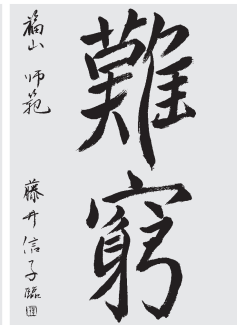 難窮
福山 師範 藤井信子臨